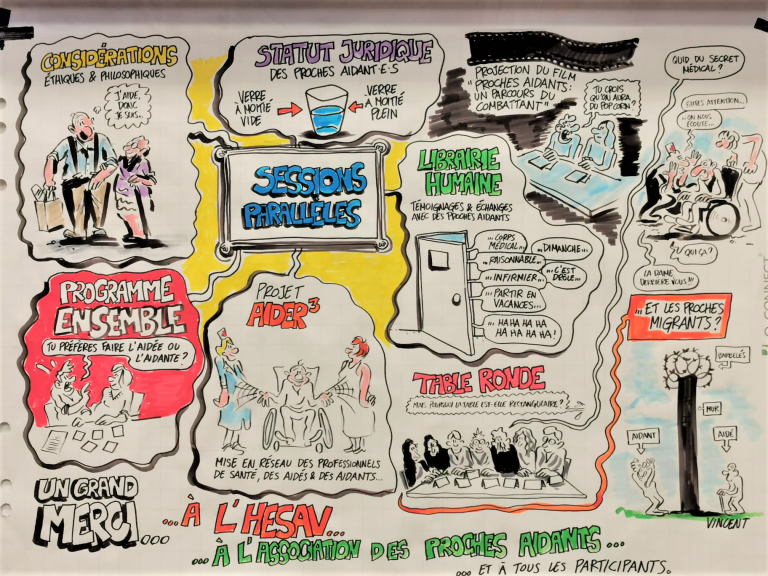 CONSIDÉRATIONS
ÉTHIQUES & PHILOSOPHIQUES
J'AIDE,
DONC
JE SUIS...
STATUT JURIDIQUE
DES PROCHES AIDANT·E·S
VERRE
À MOITIÉ
VIDE
VERRE
À MOITIÉ
PLEIN
PROJECTION DU FILM
"PROCHES AIDANTS :
UN PARCOURS DU
COMBATTANT"
TU CROIS
QU'ON AURA
DU POPCORN ?
QUID DU SECRET
MÉDICAL ?
FAITES ATTENTION...
ON NOUS
ÉCOUTE...
QUI ÇA ?
LA DAME
DERRIÈRE VOUS !!
SESSIONS
PARALLÈLES
LIBRAIRIE
HUMAINE
TÉMOIGNAGES & ÉCHANGES
AVEC DES PROCHES AIDANTS
... CORPS
MÉDICAL...
... DIMANCHE...
... RAISONNABLE...
... INFIRMIER...
... C'EST
DRÔLE...
... PARTIR EN
VACANCES...
... HA HA HA HA
HA HA HA HA !
PROGRAMME
ENSEMBLE
TU PRÉFÈRES FAIRE L'AIDÉE OU
L'AIDANTE ?
PROJET
AIDER³
MISE EN RÉSEAU DES PROFESSIONNELS
DE SANTÉ, DES AIDÉS & DES AIDANTS...
TABLE RONDE
MAIS POURQUOI LA TABLE EST-ELLE RECTANGULAIRE ?
... ET LES PROCHES
MIGRANTS ?
BARBELÉS
MUR
AIDANT
AIDÉ
VINCENT
UN GRAND
MERCI...
... À L'HESAV...
... À L'ASSOCIATION DES PROCHES AIDANTS...
... ET À TOUS LES PARTICIPANTS.
CONNECT